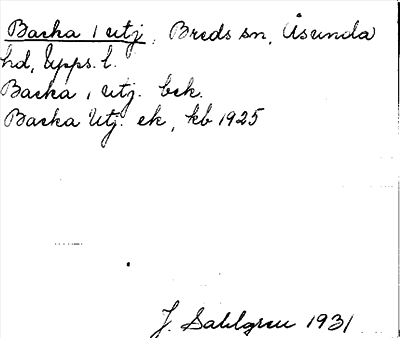 Backa, utj, Breds sn, Åsunda
hd, Upps. l.
Backa, utj. bek.
Backa Utj. ek, kb 1925
J. Sahlgren 1931